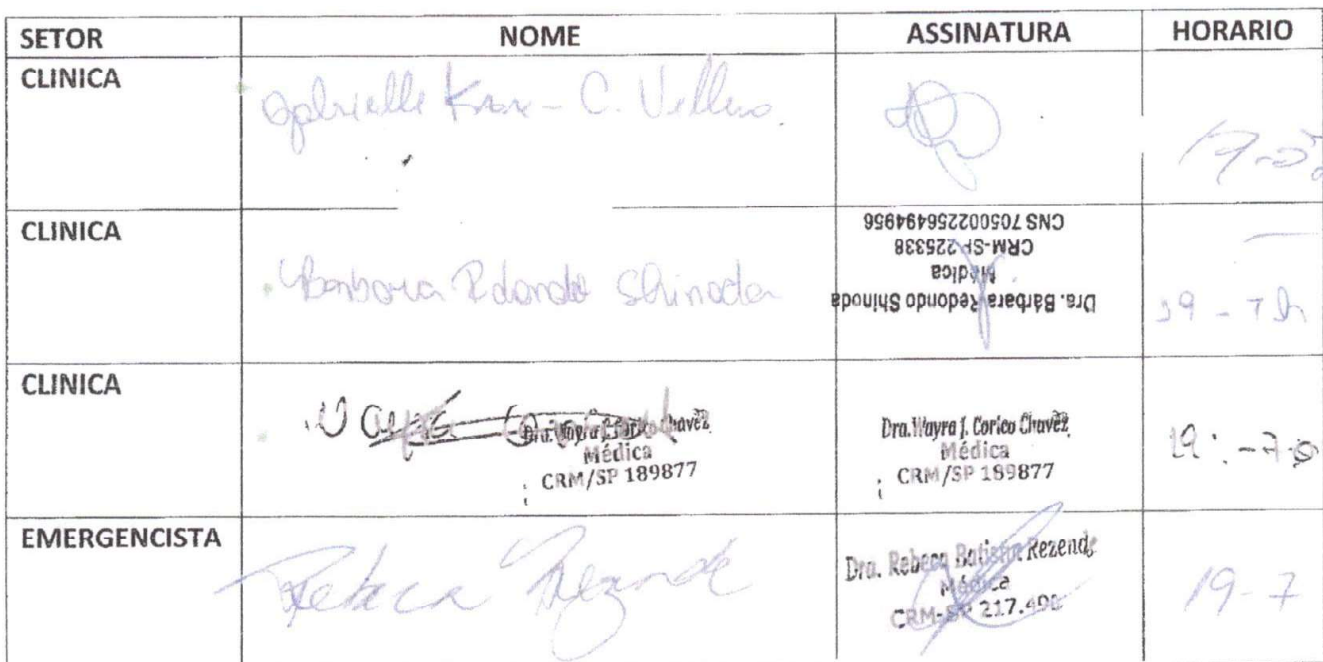 SETOR NOME ASSINATURA HORARIO
CLINICA
Gabrielle C.
CLINICA
Barbara Redondo Shinoda
Dra. Bárbara Redondo Shinoda
Médica
CRM-SP 225338
CNS 705002256494956
19 - 7h
CLINICA
Wayra
Dra. Wayra J. Corico Chavez
Médica
CRM/SP 189877
Dra. Wayra J. Corico Chavez
Médica
CRM/SP 189877
EMERGENCISTA
Rebeca Rezende
Dra. Rebeca Batista Rezende
Médica
CRM-SP
19-7